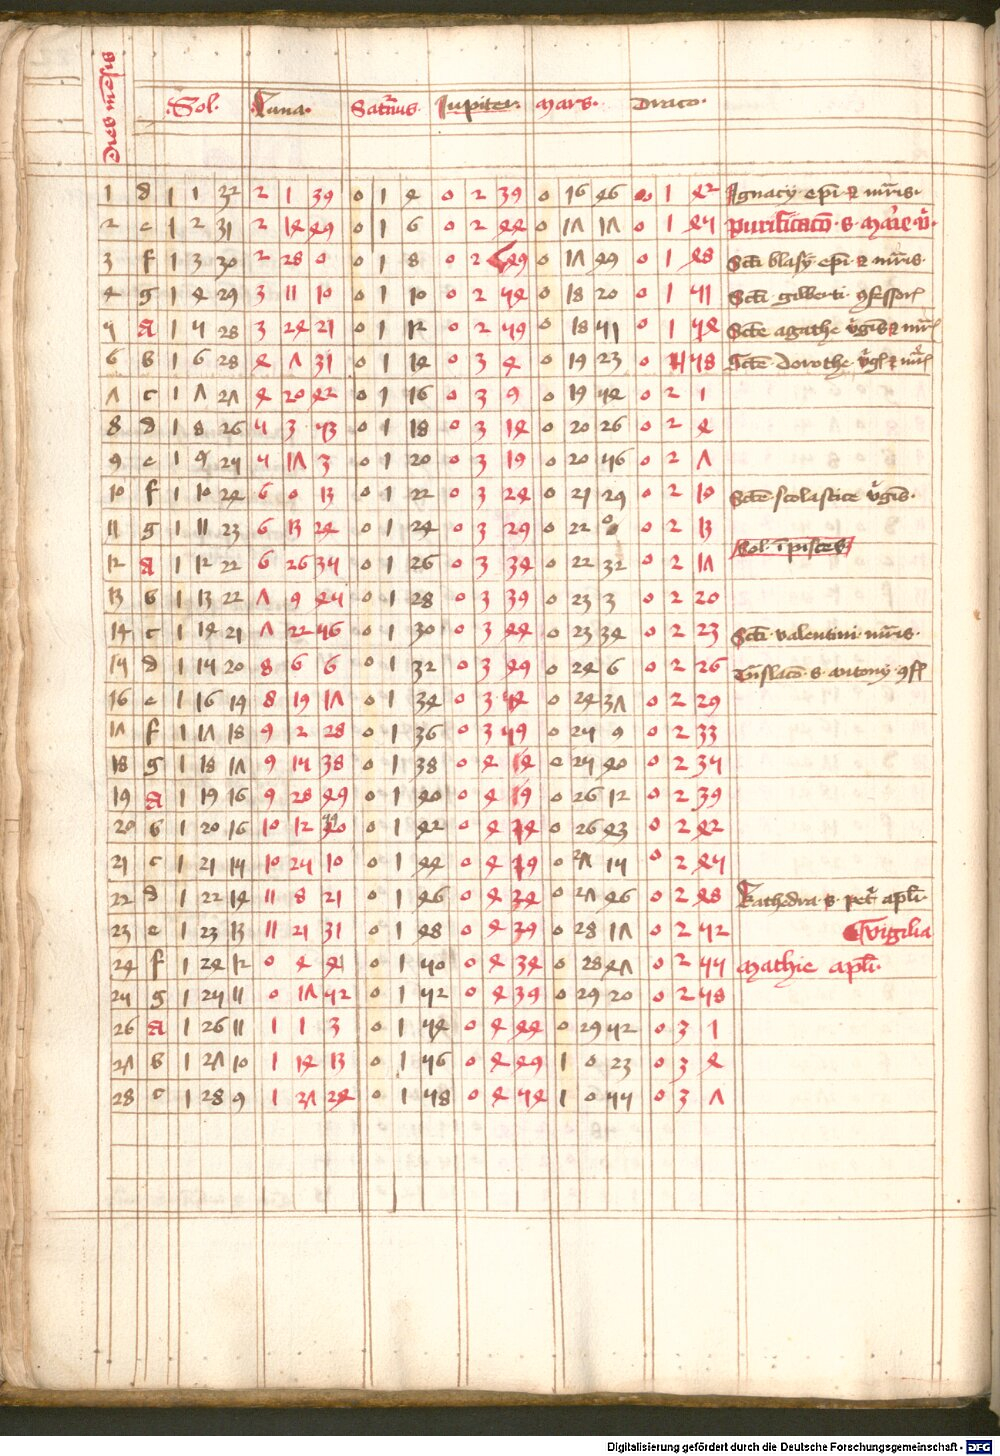 Dies mēsis
Sol. Luna. Satnus Iupiter. Mars. Draco.
1 d 1 1 32 2 1 39 0 1 4 0 2 39 0 16 46 0 1 42 Ignacij epi et mris.
2 e 1 2 31 2 14 49 0 1 6 0 2 44 0 17 17 0 1 45 Purificacō s marie v.
3 f 1 3 30 2 28 0 0 1 8 0 2 49 0 17 49 0 1 48 Scti blasij epi et mris.
4 g 1 4 29 3 11 10 0 1 10 0 2 54 0 18 20 0 1 51 Scti gilberti 9fessor
5 A 1 5 28 3 24 21 0 1 12 0 2 59 0 18 51 0 1 54 Scte agathe vgis et mr
6 b 1 6 28 4 7 31 0 1 14 0 3 4 0 19 23 0 1 58 Scte dorothe vgs et mr
7 c 1 7 27 4 20 42 0 1 16 0 3 9 0 19 54 0 2 1
8 d 1 8 26 5 3 53 0 1 18 0 3 14 0 20 26 0 2 4
9 e 1 9 25 5 17 3 0 1 20 0 3 19 0 20 56 0 2 7
10 f 1 10 24 6 0 13 0 1 22 0 3 24 0 21 29 0 2 10 Scte scolastice vgis.
11 g 1 11 23 6 13 24 0 1 24 0 3 29 0 22 0 0 2 13
Sol ī pisces
12 A 1 12 22 6 26 35 0 1 26 0 3 34 0 22 32 0 2 17
13 b 1 13 22 7 9 45 0 1 28 0 3 39 0 23 3 0 2 20
14 c 1 14 21 7 22 56 0 1 30 0 3 44 0 23 34 0 2 23 Scti valentini mris.
15 d 1 15 20 8 6 6 0 1 32 0 3 49 0 24 6 0 2 26 Trislacō s antonij 9f
16 e 1 16 19 8 19 17 0 1 34 0 3 54 0 24 37 0 2 29
17 f 1 17 18 9 2 28 0 1 36 0 3 59 0 25 9 0 2 33
18 g 1 18 17 9 15 38 0 1 38 0 4 14 0 25 40 0 2 35
19 A 1 19 16 9 28 49 0 1 40 0 4 19 0 26 12 0 2 39
20 b 1 20 16 10 12 0 1 42 0 4 0 26 43 0 2 42
21 c 1 21 15 10 25 10 0 1 44 0 4 0 27 15 0 2 45
22 d 1 22 14 11 8 21 0 1 46 0 4 34 0 27 46 0 2 48 Kathedra s petri apli
23 e 1 23 13 11 21 31 0 1 48 0 4 39 0 28 17 0 2 52 Vigilia
24 f 1 24 12 0 4 0 1 50 0 4 34 0 28 47 0 2 55 Mathie apli.
25 g 1 25 11 0 17 52 0 1 52 0 4 39 0 29 20 0 2 58
26 A 1 26 11 1 1 3 0 1 54 0 4 44 0 29 52 0 3 1
27 b 1 27 10 1 14 13 0 1 56 0 4 49 1 0 23 0 3 4
28 c 1 28 9 1 27 24 0 1 58 0 4 54 1 0 55 0 3 7
Digitalisierung gefördert durch die Deutsche Forschungsgemeinschaft - DFG